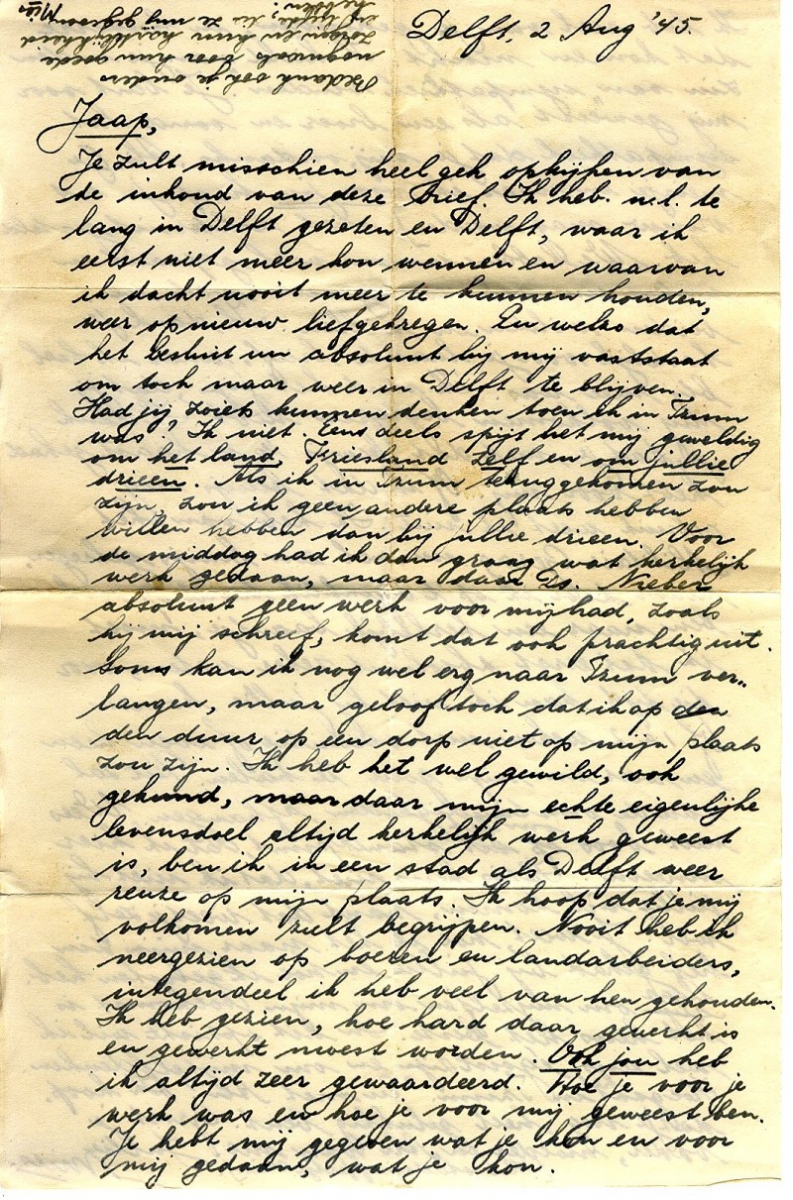 Delft, 2 Aug '45.
Bedank ook je ouders
nogmaals voor hun goede
zorgen en hun hartelijkheid
en liefde, die ze mij gegeven
hebben. Mien
Jaap,
Je zult misschien heel gek opkijken van
de inhoud van deze brief. Ik heb. n.l. te
lang in Delft gezeten en Delft, waar ik
eerst niet meer kon wennen en waarvan
ik dacht nooit meer te kunnen houden,
weer opnieuw liefgekregen. En welzo dat
het besluit nu absoluut bij mij vaststaat
om toch maar weer in Delft te blijven.
Had jij zoiets kunnen denken toen ik in Tzum
was? Ik niet. Eens deels spijt het mij geweldig
om het land, Friesland zelf en om jullie
drieën. Als ik in Tzum teruggekomen zou
zijn, zou ik geen andere plaats hebben
willen hebben dan bij jullie drieën. Voor
de middag had ik dan graag wat kerkelijk
werk gedaan, maar daar Ds. Nieber
absoluut geen werk voor mij had, zoals
hij mij schreef, komt dat ook prachtig uit.
Soms kan ik nog wel erg naar Tzum ver-
langen, maar geloof toch dat ik op den
den duur op een dorp niet op mijn plaats
zou zijn. Ik heb het wel gewild, ook
gekund, maar daar mijn echte eigenlijke
levensdoel altijd kerkelijk werk geweest
is, ben ik in een stad als Delft weer
reuze op mijn plaats. Ik hoop dat je mij
volkomen zult begrijpen. Nooit heb ik
neergezien op boeren en landarbeiders,
integendeel ik heb veel van hen gehouden.
Ik heb gezien, hoe hard daar gewerkt is
en gewerkt moest worden. Ook jou heb
ik altijd zeer gewaardeerd. Hoe je voor je
werk was en hoe je voor mij geweest ben.
Je hebt mij gegeven wat je kon en voor
mij gedaan, wat je kon.